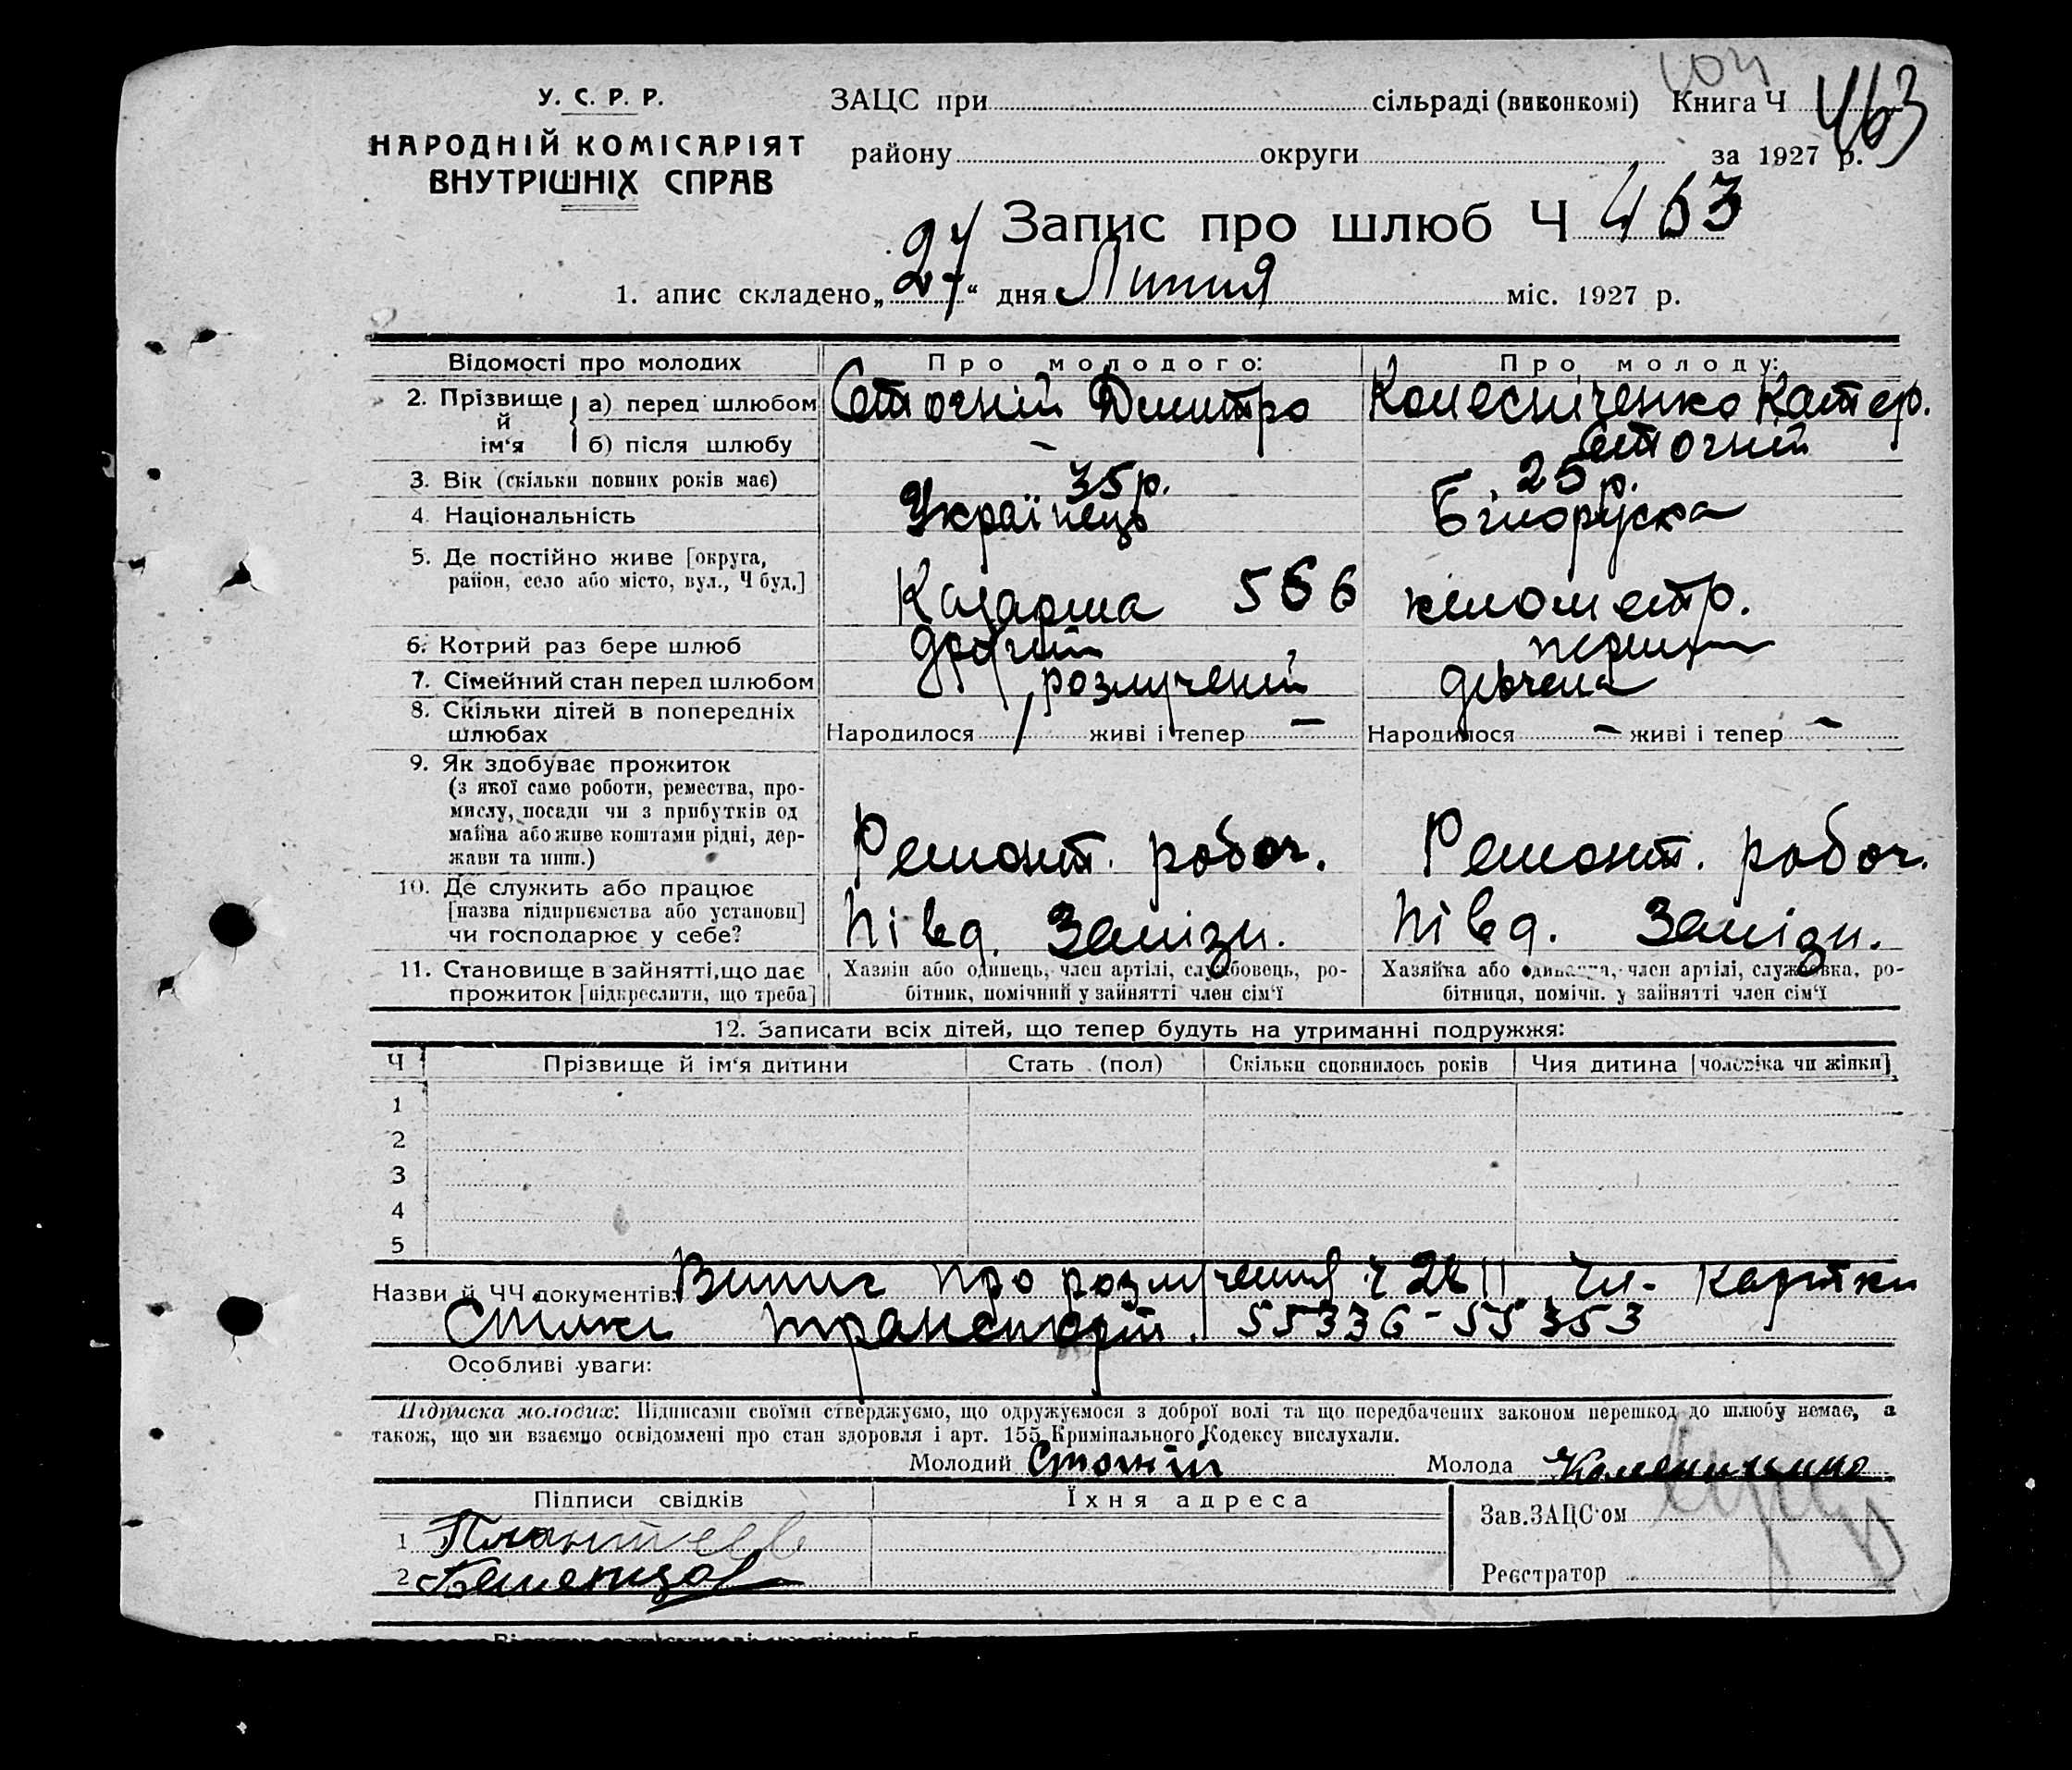 104
У. С. Р. Р.
НАРОДНІЙ КОМІСАРІЯТ
ВНУТРІШНІХ СПРАВ
ЗАЦС при сільраді (виконкомі) Книга Ч 463
району округи за 1927 р.
Запис про шлюб Ч 463
1. апис складено „27“ дня Липня міс. 1927 р.
Відомості про молодих Про молодого: Про молоду:
2. Прізвище й ім‘я а) перед шлюбом Стогній Дмитро Колесниченко Катер.
б) після шлюбу - Стогній
3. Вік (скільки повних років має) 35 р. 25 р.
4. Національність Українець Білоруска
5. Де постійно живе [округа,
район, село або місто, вул., Ч буд.] Казарма 566 кілометр.
6. Котрий раз бере шлюб другий перший
7. Сімейний стан перед шлюбом розлучений дівчена
8. Скільки дітей в попередніх
шлюбах Народилося 1 живі і тепер — Народилося — живі і тепер —
9. Як здобуває прожиток
(з якої саме роботи, ремества, про-
мислу, посади чи з прибутків од
майна або живе коштами рідні, дер-
жави та инш.) Ремонт. робоч. Ремонт. робоч.
10. Де служить або працює
[назва підприємства або установи]
чи господарює у себе? Півд. Залізн. Півд. Залізн.
11. Становище в зайнятті, що дає Хазяїн або одинець, член артілі, службовець, ро- Хазяйка або одиначка, член артілі, службовка, ро-
прожиток [підкреслити, що треба] бітник, помічний у зайнятті член сім‘ї бітниця, помічн. у зайнятті член сім‘ї
12. Записати всіх дітей, що тепер будуть на утриманні подружжя:
Ч Прізвище й ім‘я дитини Стать (пол) Скільки сповнилось років Чия дитина [чоловіка чи жінки]
1
2
3
4
5
Назви й ЧЧ документів: Випис про розлучення Ч 2611 Чл. картки
Спілки транспорт. 55336-55353
Особливі уваги:
Підписка молодих: Підписами своїми стверджуємо, що одружуємося з доброї волі та що передбачених законом перешкод до шлюбу немає, а
також, що ми взаємно освідомлені про стан здоровля і арт. 155 Кримінального Кодексу вислухали.
Молодий Стогній Молода
Підписи свідків Їхня адреса
Зав. ЗАЦС‘ом
1
2
Реєстратор